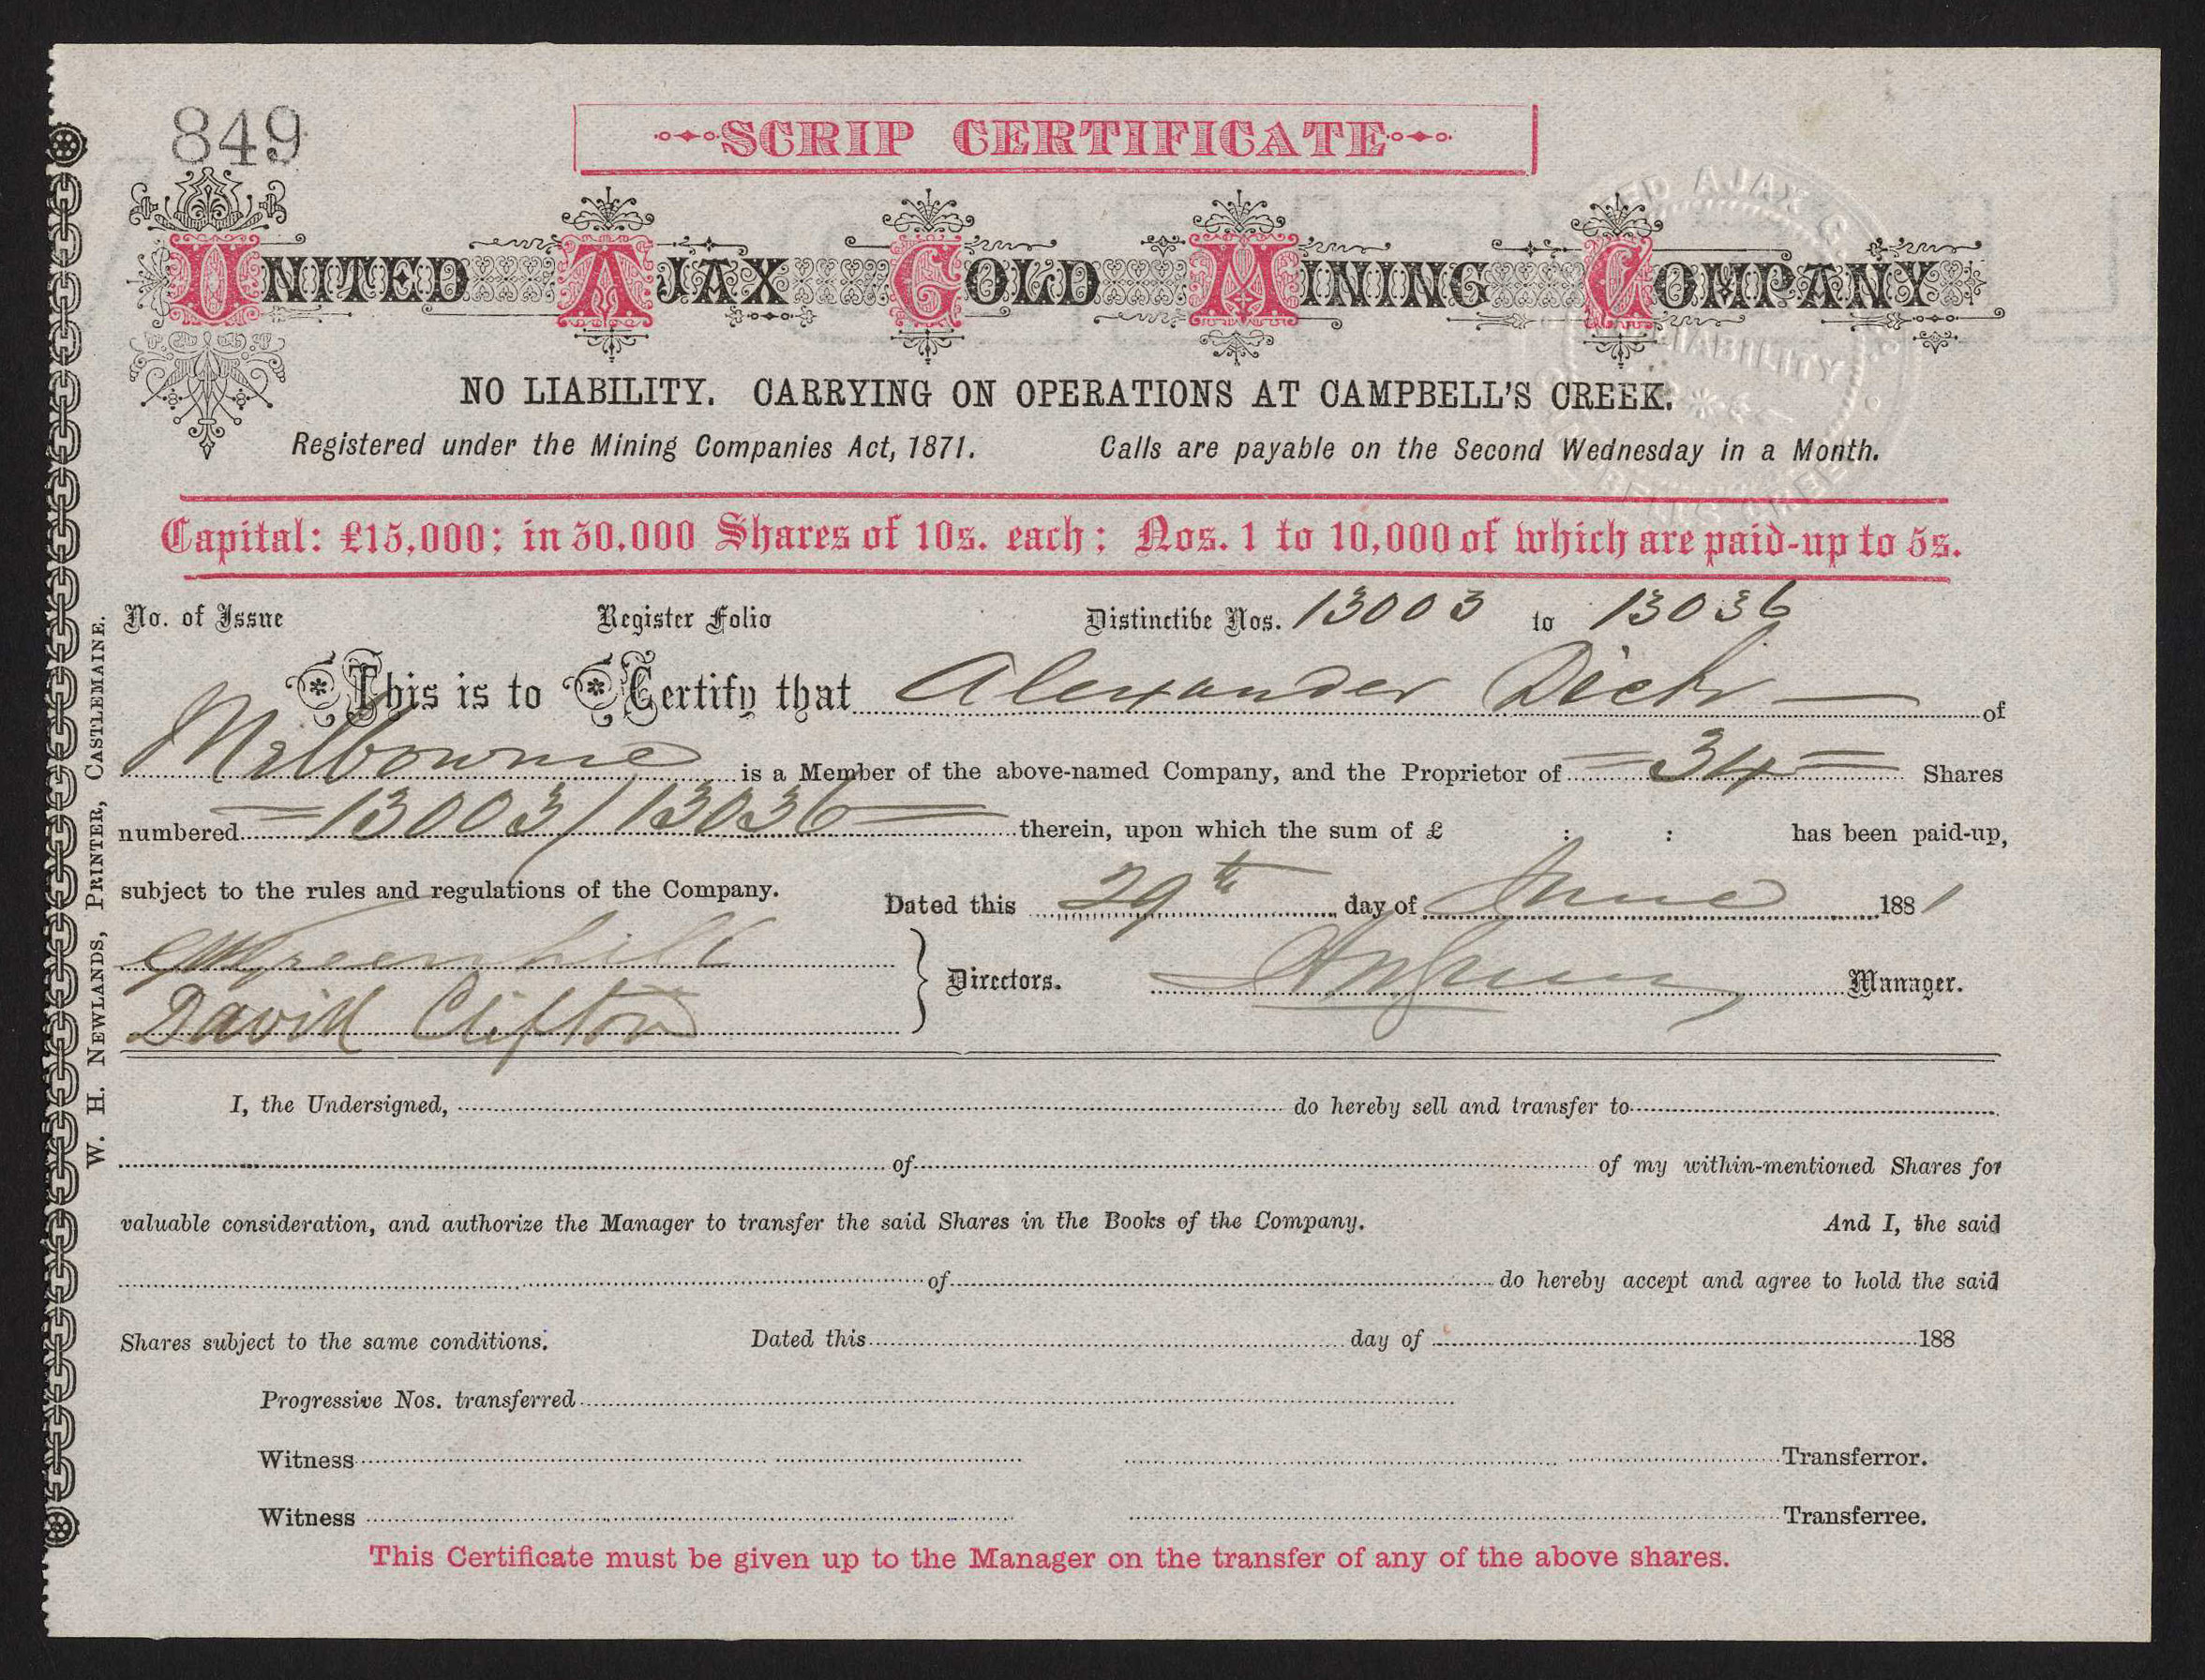 849
SCRIP CERTIFICATE
UNITED AJAX GOLD MINING COMPANY
NO LIABILITY. CARRYING ON OPERATIONS AT CAMPBELL'S CREEK.
Registered under the Mining Companies Act, 1871. Calls are payable on the Second Wednesday in a Month.
Capital: £15,000; in 30,000 Shares of 10s. each; Nos. 1 to 10,000 of which are paid-up to 5s.
No. of Issue Register Folio Distinctive Nos. 13003 to 13036
This is to Certify that Alexander Dick of
Melbourne is a Member of the above-named Company, and the Proprietor of =34= Shares
numbered =13003/13036= therein, upon which the sum of £ : : has been paid-up,
subject to the rules and regulations of the Company. Dated this 29th day of June 1881
Greenhill
David Clifton
Directors. Manager.
I, the Undersigned, do hereby sell and transfer to
of of my within-mentioned Shares for
valuable consideration, and authorize the Manager to transfer the said Shares in the Books of the Company. And I, the said
of do hereby accept and agree to hold the said
Shares subject to the same conditions. Dated this day of 188
Progressive Nos. transferred
Witness Transferror.
Witness Transferree.
This Certificate must be given up to the Manager on the transfer of any of the above shares.
W. H. NEWLANDS, PRINTER, CASTLEMAINE.
AJAX
LIABILITY